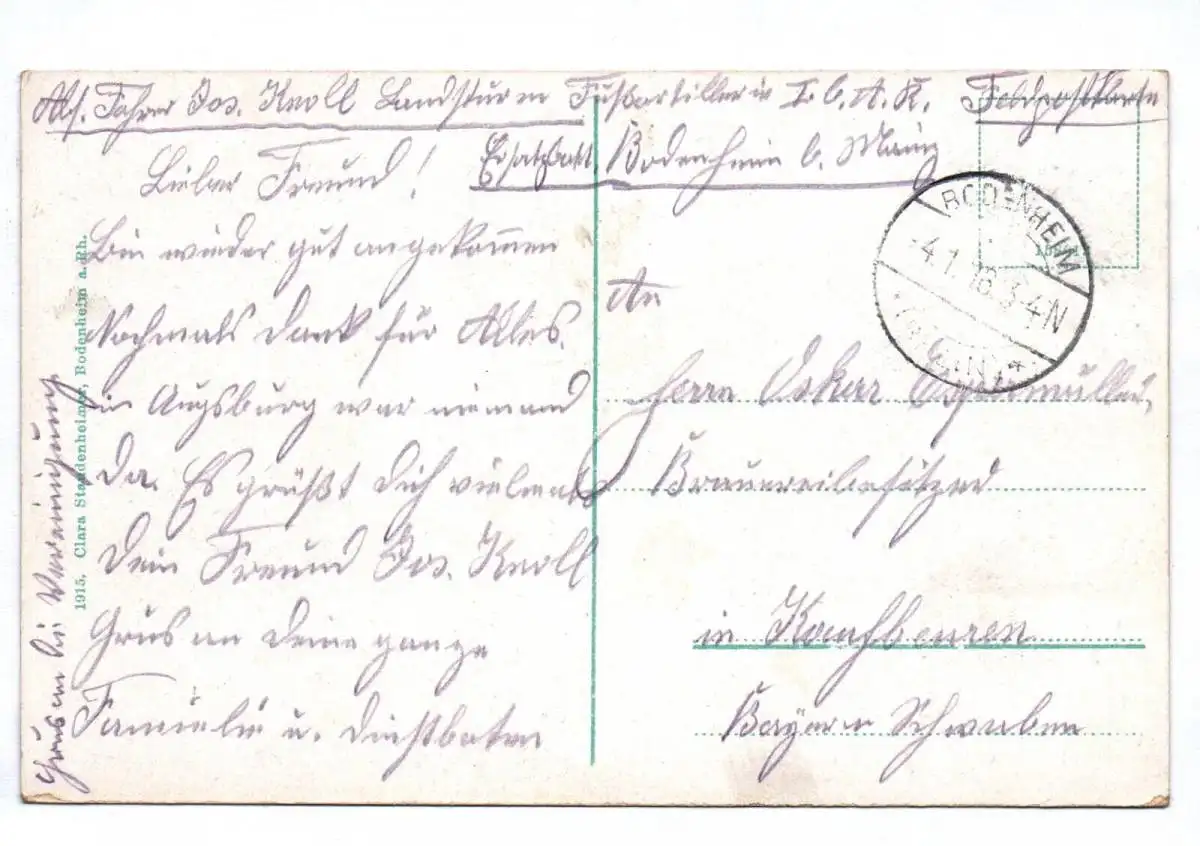 Abs. Fahrer Jos. Knoll Landsturm Fußartillerie I. b. A. K. Feldpostkarte
Ersatzbatt. Bodenheim b. Mainz
Lieber Freund!
Bin wieder gut angekommen
Nochmals Dank für Alles.
in Augsburg war niemand
da. Es grüßt Dich vielmals
Dein Freund Jos. Knoll
Grus an Deine ganze
Familie u. Dienstboten
Grus an die Vereinigung
1915. Clara Staudenheimer, Bodenheim a. Rh.
BODENHEIM
4.1.16. 3-4N
An
Herrn Oskar
Brauereibesitzer
in Kaufbeuren
Bayern Schwaben